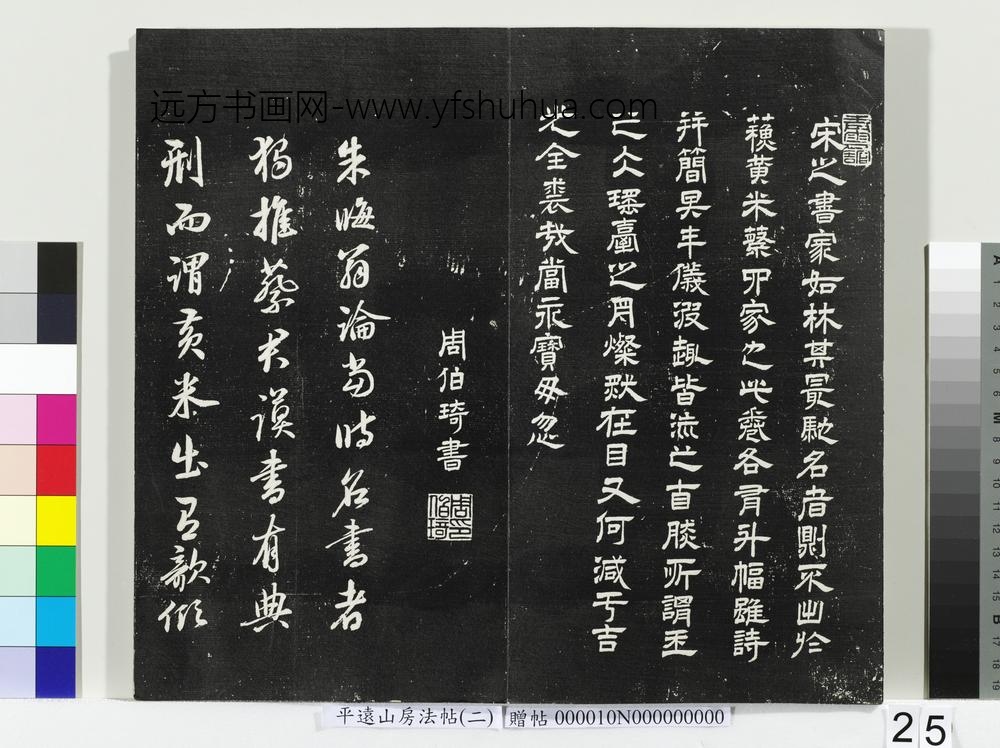 宋之書家如林其最馳名者則不出於
蘇黃米蔡四家也此卷各有斗幅雖詩
并簡其丰儀混趣皆流之自勝所謂玉
之瑤臺之月燦然在目又何減于吉
光全裘哉當永寶毋忽
周伯琦書
朱晦翁論當時名書者
獨推蔡君謨書有典
刑而謂黃米出有欹傾
远方书画网-www.yfshuhua.com
平遠山房法帖(二) 贈帖 000010N000000000
25